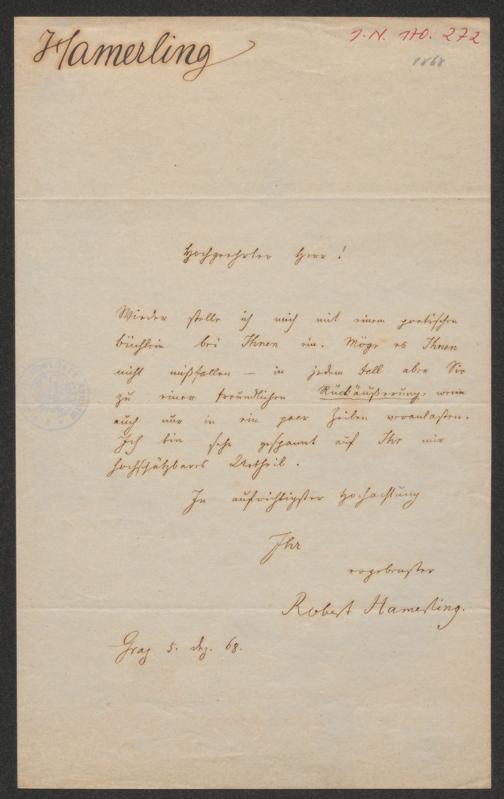 Hamerling
I. N. 170.272
1868
Hochgeehrter Herr!
Wieder stelle ich mich mit einem poetischen
Büchlein bei Ihnen ein. Möge es Ihnen
nicht mißfallen – in jedem Fall aber Sie
zu einer freundlichen Rückäußerung, wenn
auch nur in ein paar Zeilen veranlassen.
Ich bin sehr gespannt auf Ihr mir
hochschätzbares Urtheil.
In aufrichtigster Hochachtung
Ihr
ergebenster
Robert Hamerling.
Graz 5. Dez. 68.